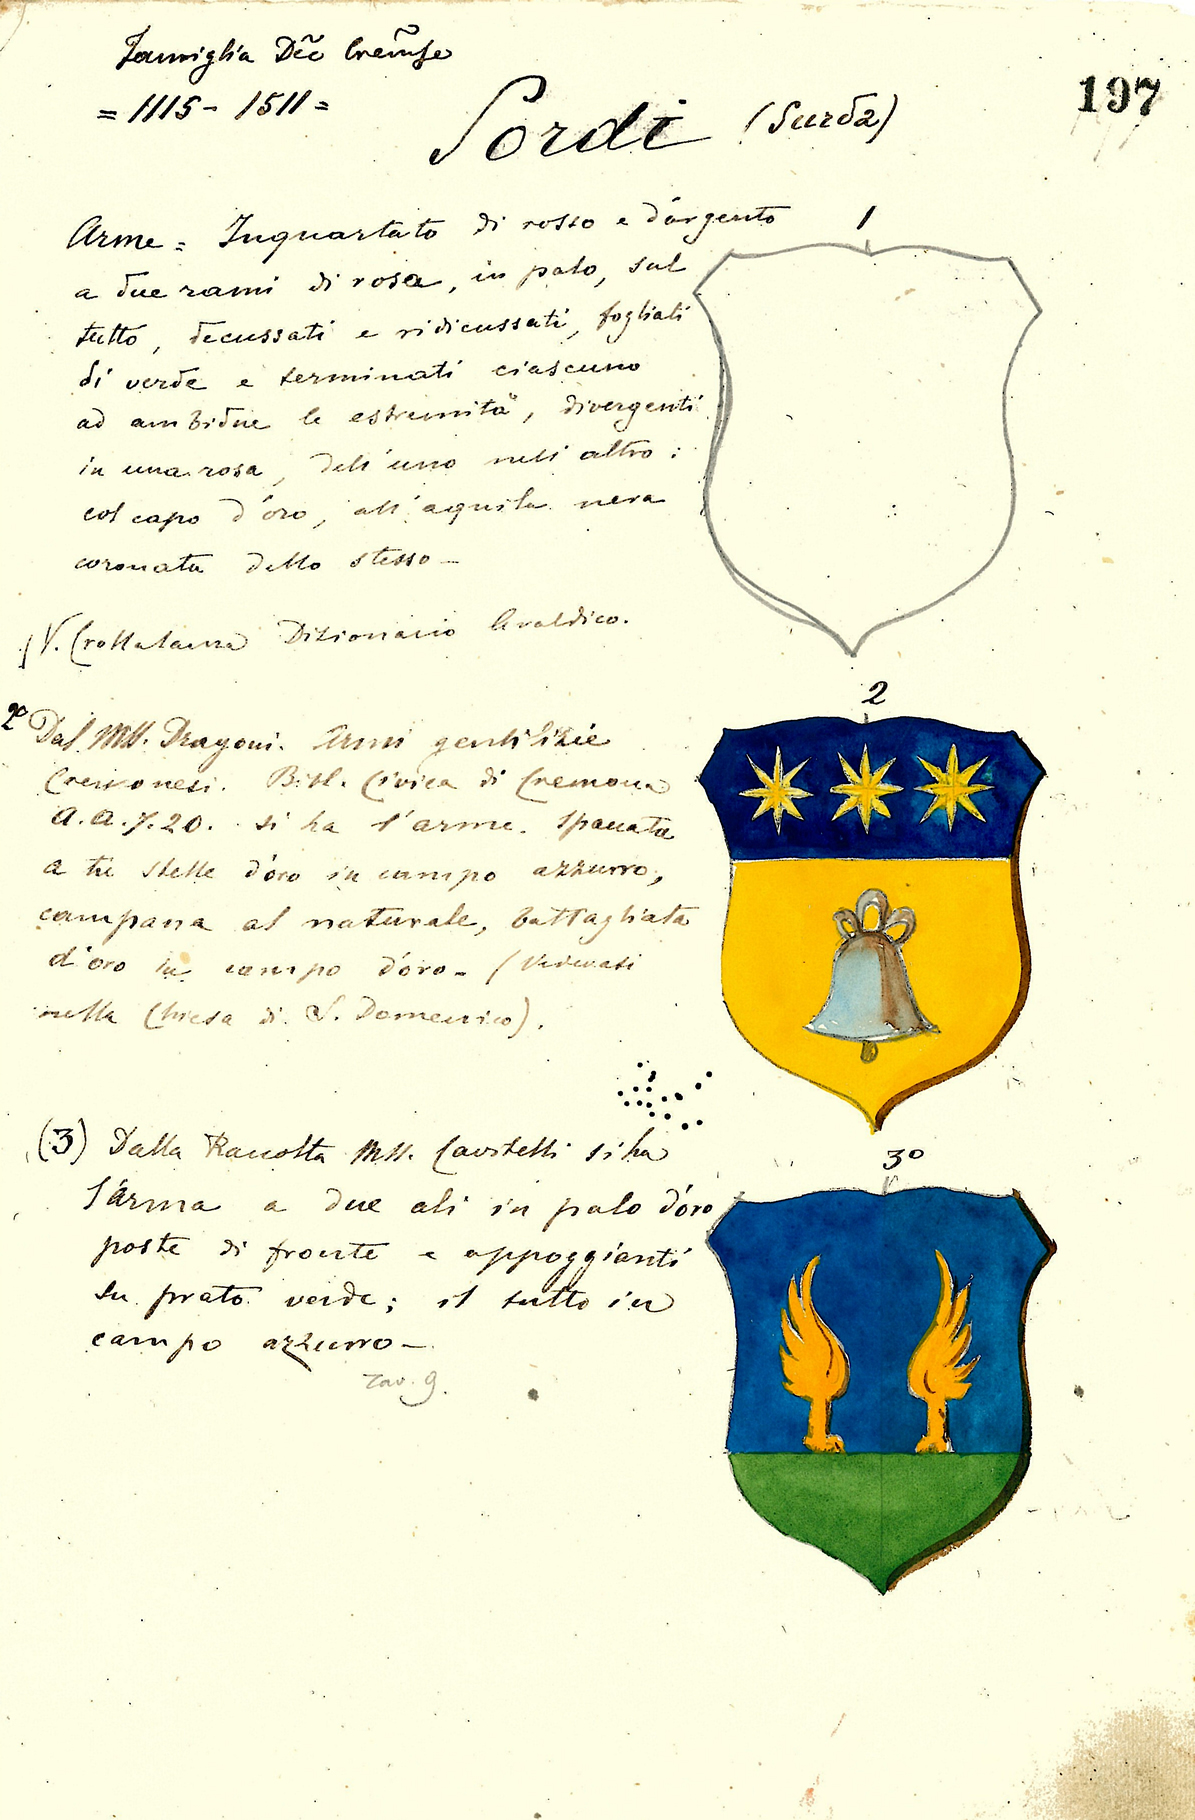 Famiglia Dec̃ Crem̃se
= 1115 - 1511 =
197
Sordi (Surda)
Arme = Inquartato di rosso e d'argento
a due rami di rosa, in palo, sul
tutto, decussati e ridicussati, fogliati
di verde e terminati ciascuno
ad ambidue le estremità, divergenti
in una rosa, dell'uno nell'altro;
col capo d'oro, all'aquila nera
coronata dello stesso -
V. Crollalanza Dizionario Araldico.
1
2
2º Dal MSS. Dragoni. Armi gentilizie
Cremonesi. Bibl. Civica di Cremona
A.A.7.20. si ha l'arme. Spaccata
a tre stelle d'oro in campo azzurro,
campana al naturale, battagliata
d'oro in campo d'oro - (Vedevasi
nella Chiesa di S. Domenico).
3º
(3) Dalla Raccolta MSS. Cavitelli si ha
l'arma a due ali in palo d'oro
poste di fronte e appoggianti
su prato verde; il tutto in
campo azzurro -
Tav. 9.